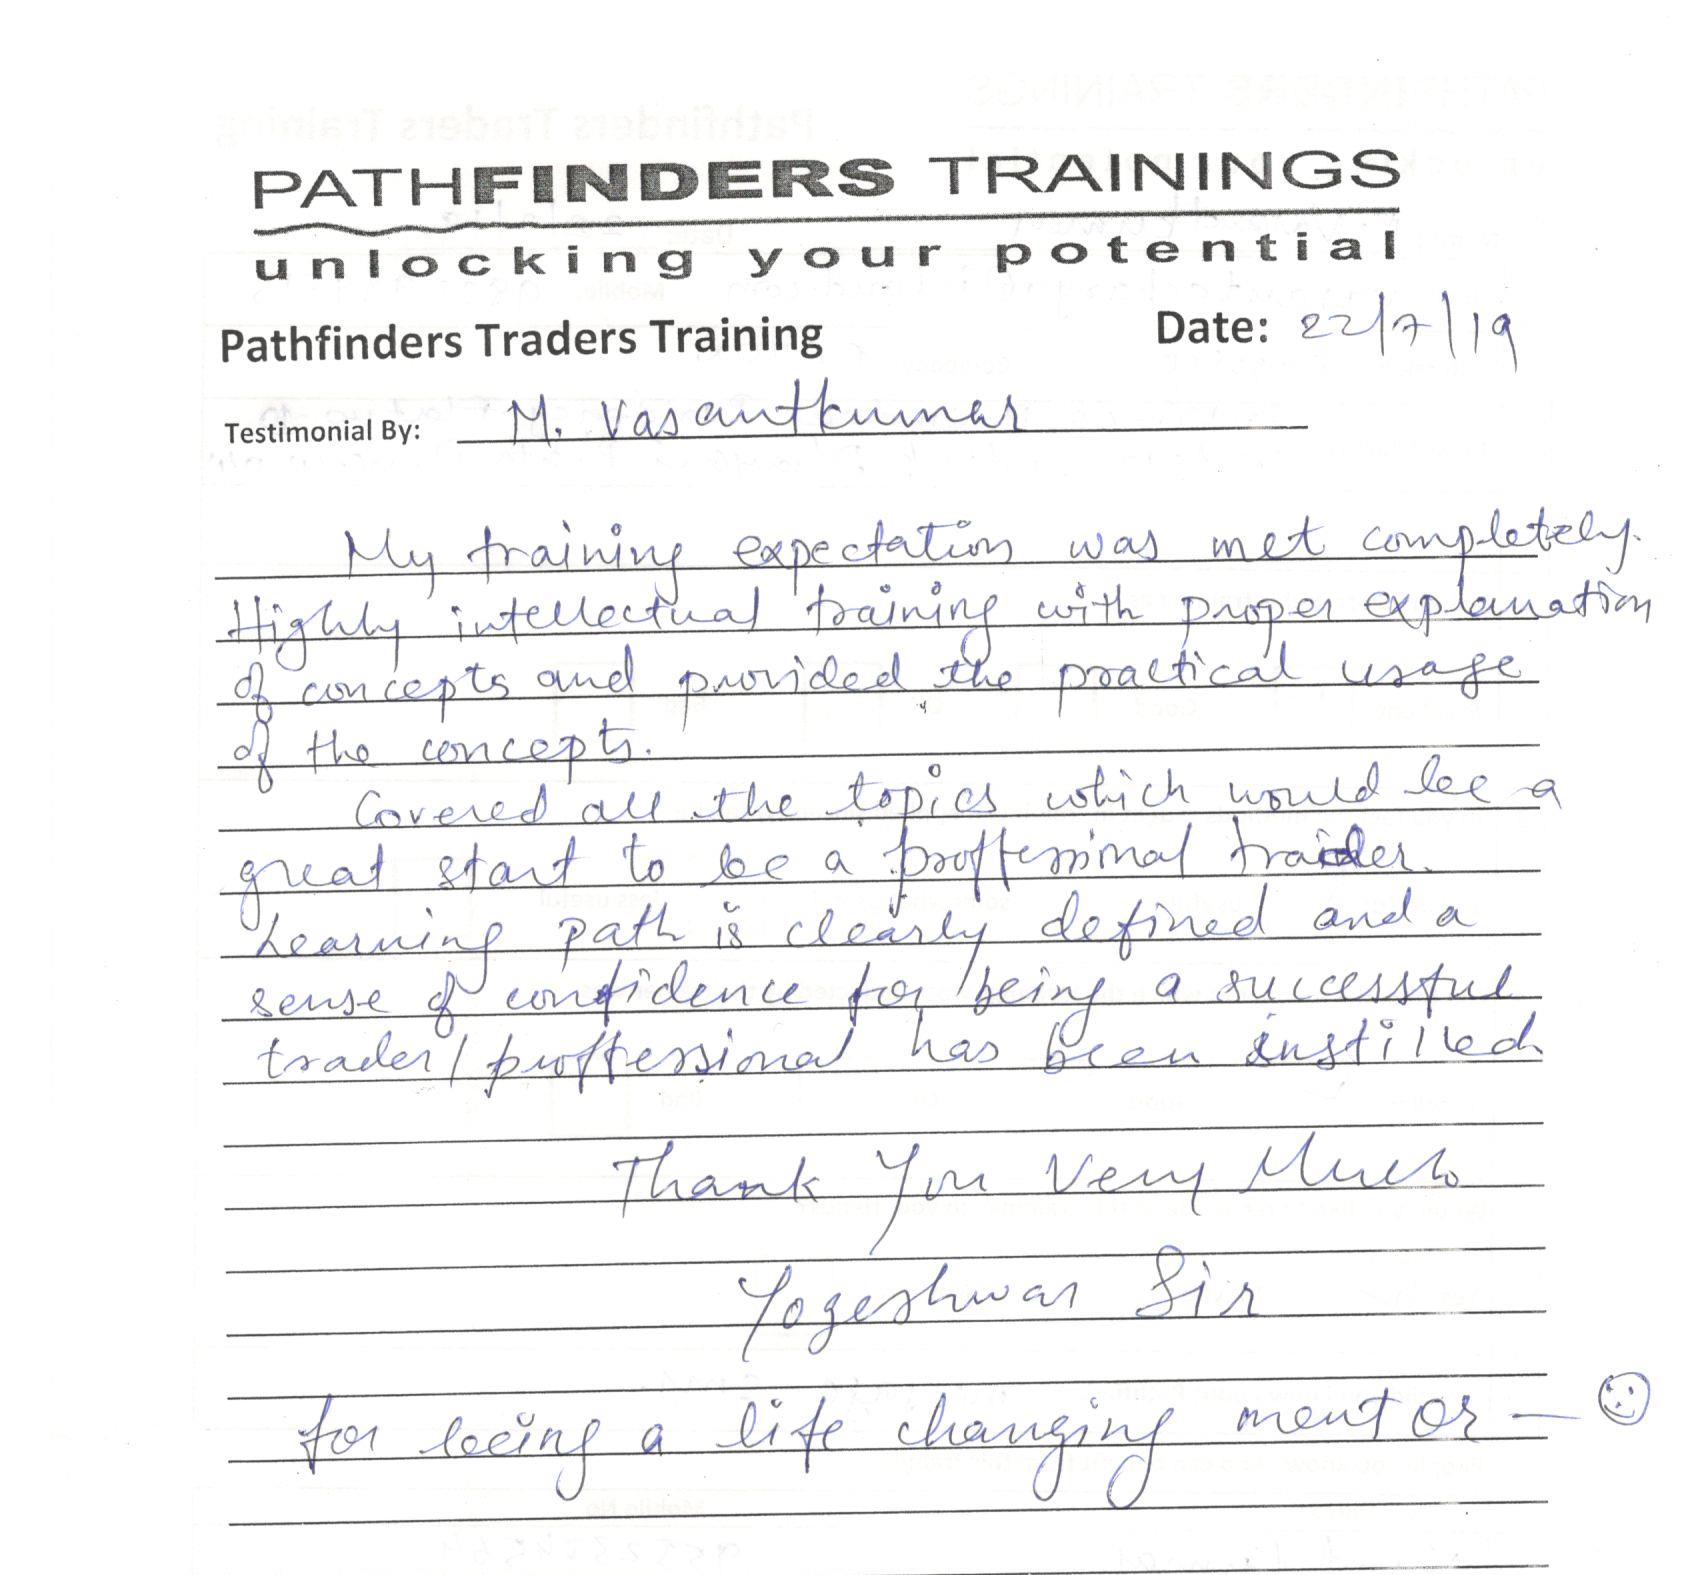 PATHFINDERS TRAININGS
unlocking your potential
Pathfinders Traders Training Date: 22/7/19
Testimonial By: M. Vasantkumar
My training expectation was met completely.
Highly intellectual training with proper explanation
of concepts and provided the practical usage
of the concepts.
Covered all the topics which would be a
great start to be a proffessional trader.
Learning path is clearly defined and a
sense of confidence for being a successful
trader/proffessional has been instilled
Thank You Very Much
Yogeshwar Sir
for being a life changing mentor —